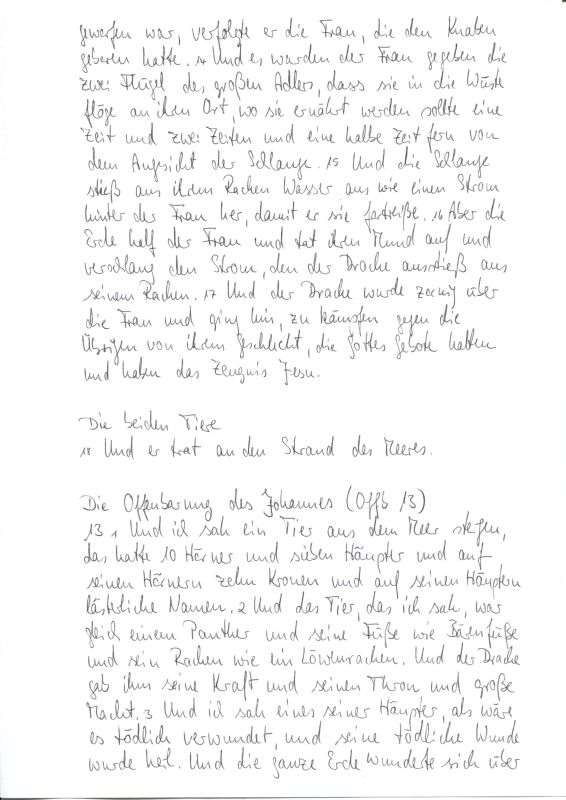 geworfen war, verfolgte er die Frau, die den Knaben
geboren hatte. 14 Und es wurden der Frau gegeben die
zwei Flügel des großen Adlers, dass sie in die Wüste
flöge an ihren Ort, wo sie ernährt werden sollte eine
Zeit und zwei Zeiten und eine halbe Zeit fern von
dem Angesicht der Schlange. 15 Und die Schlange
stieß aus ihrem Rachen Wasser aus wie einen Strom
hinter der Frau her, damit er sie fortreiße. 16 Aber die
Erde half der Frau und tat ihren Mund auf und
verschlang den Strom, den der Drache ausstieß aus
seinem Rachen. 17 Und der Drache wurde zornig über
die Frau und ging hin, zu kämpfen gegen die
Übrigen von ihrem Geschlecht, die Gottes Gebote halten
und haben das Zeugnis Jesu.
Die beiden Tiere
18 Und er trat an den Strand des Meeres.
Die Offenbarung des Johannes (Offb 13)
13 1 Und ich sah ein Tier aus dem Meer steigen,
das hatte 10 Hörner und sieben Häupter und auf
seinen Hörnern zehn Kronen und auf seinen Häuptern
lästerliche Namen. 2 Und das Tier, das ich sah, war
gleich einem Panther und seine Füße wie Bärenfüße
und sein Rachen wie ein Löwenrachen. Und der Drache
gab ihm seine Kraft und seinen Thron und große
Macht. 3 Und ich sah eines seiner Häupter, als wäre
es tödlich verwundet, und seine tödliche Wunde
wurde heil. Und die ganze Erde wunderte sich über